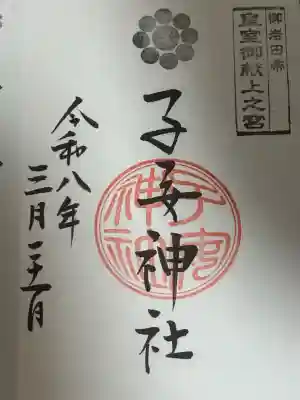 御岩田帯
皇室御献上之宮
子安神社
子安
神社
令和八年
三月二十一日